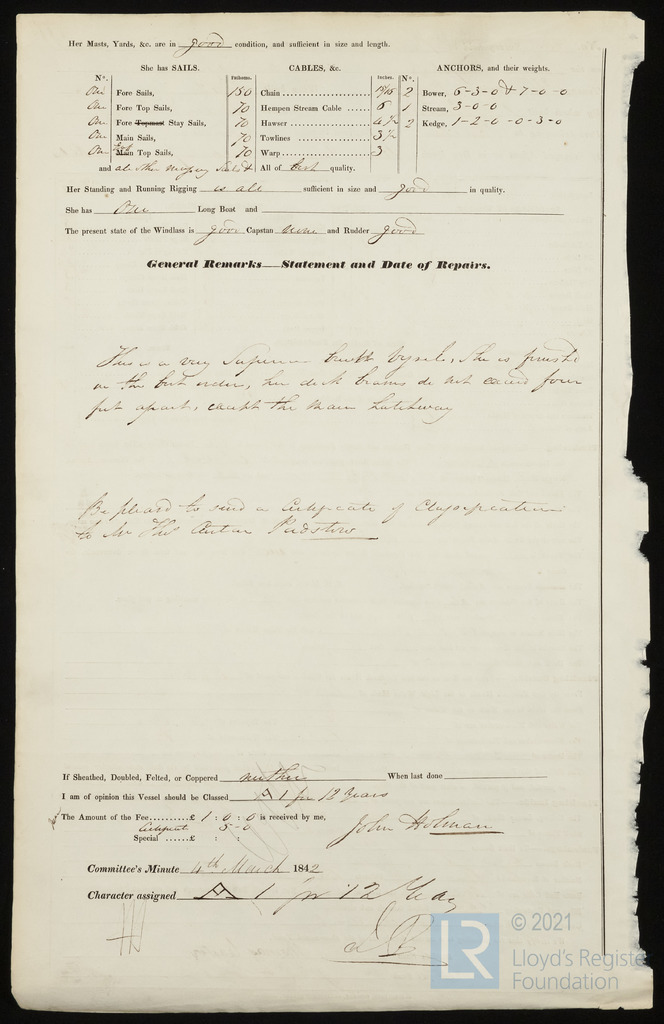 Her Masts, Yards, &c. are in good condition, and sufficient in size and length.
She has SAILS.
CABLES, &c.
ANCHORS, and their weights.
N°.
Fathoms.
Inches.
N°.
One Fore Sails,
180 Chain
15/16 2 Bower, 6-3-0 & 7-0-0
One Fore Top Sails,
70 Hempen Stream Cable 6
1 Stream, 3-0-0
One Fore Topmast Stay Sails,
70 Hawser 4 1/2
2 Kedge, 1-2-0 - 0-3-0
One Main Sails,
70 Towlines 3 1/2
One Main Top Sails,
70 Warp 3
and all other necessary Sails & All of best quality.
Her Standing and Running Rigging is all sufficient in size and good in quality.
She has One Long Boat and
The present state of the Windlass is good Capstan none and Rudder good
General Remarks—Statement and Date of Repairs.
This is a very Superior built Vessel, She is finish'd
in the best order, her deck beams do not exceed four
feet apart, except the Main hatchway
Be pleased to send a Certificate of Classification
to Mr Thos Padstow
If Sheathed, Doubled, Felted, or Coppered neither When last done
I am of opinion this Vessel should be Classed A 1 for 12 Years
The Amount of the Fee £ 1 : 0 : 0 is received by me,
Certificate 5-0
Special £ : :
John Holman
Committee's Minute 4th March 1842
Character assigned A 1 for 12 Years
LR
© 2021
Lloyd's Register
Foundation